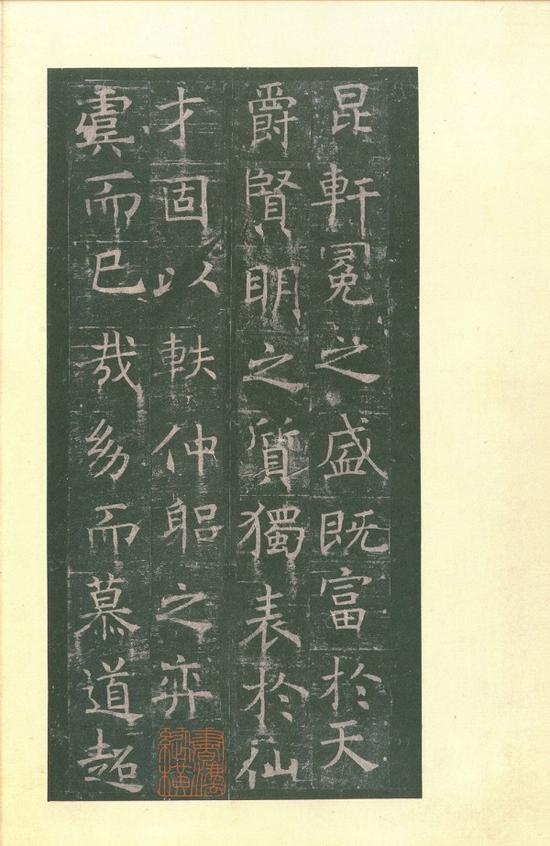 昆軒冕之盛既富於天
爵賢明之質獨表於仙
才固以軼仲躳之弈
虞而已㦲幼而慕道超